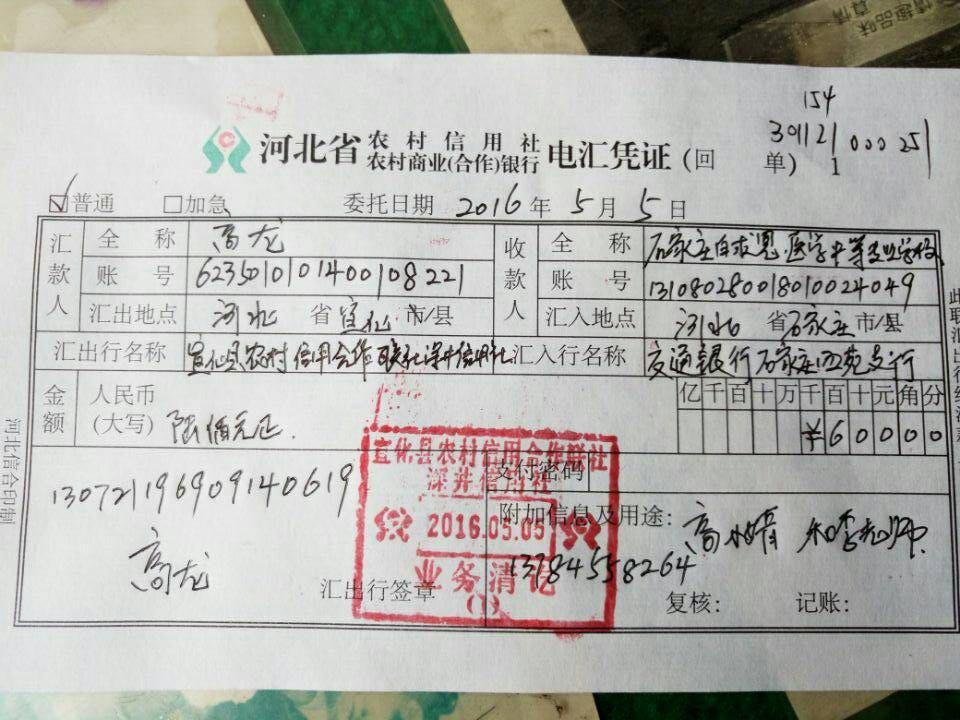 情趣品味
真情
154
39121 000251
1
河北省 农村信用社 农村商业(合作)银行 电汇凭证 (回单)
☑普通 □加急 委托日期 2016 年 5 月 5 日
汇款人 全称 高龙 收款人 全称 石家庄白求恩医学中等专业学校
账号 6235010101400108221 账号 131080280018010024049
汇出地点 河北 省 宣化 市/县 汇入地点 河北 省 石家庄 市/县
汇出行名称 宣化县农村信用合作联社深井信用社 汇入行名称 交通银行石家庄西苑支行
金额 人民币(大写) 陆佰元正 亿千百十万千百十元角分
¥60000
宣化县农村信用合作联社
深井信用社
2016.05.05
业务清讫
(1)
支付密码
130721196909140619
附加信息及用途: 高 李老师
13784558264
高龙
汇出行签章
复核: 记账:
河北信合印制